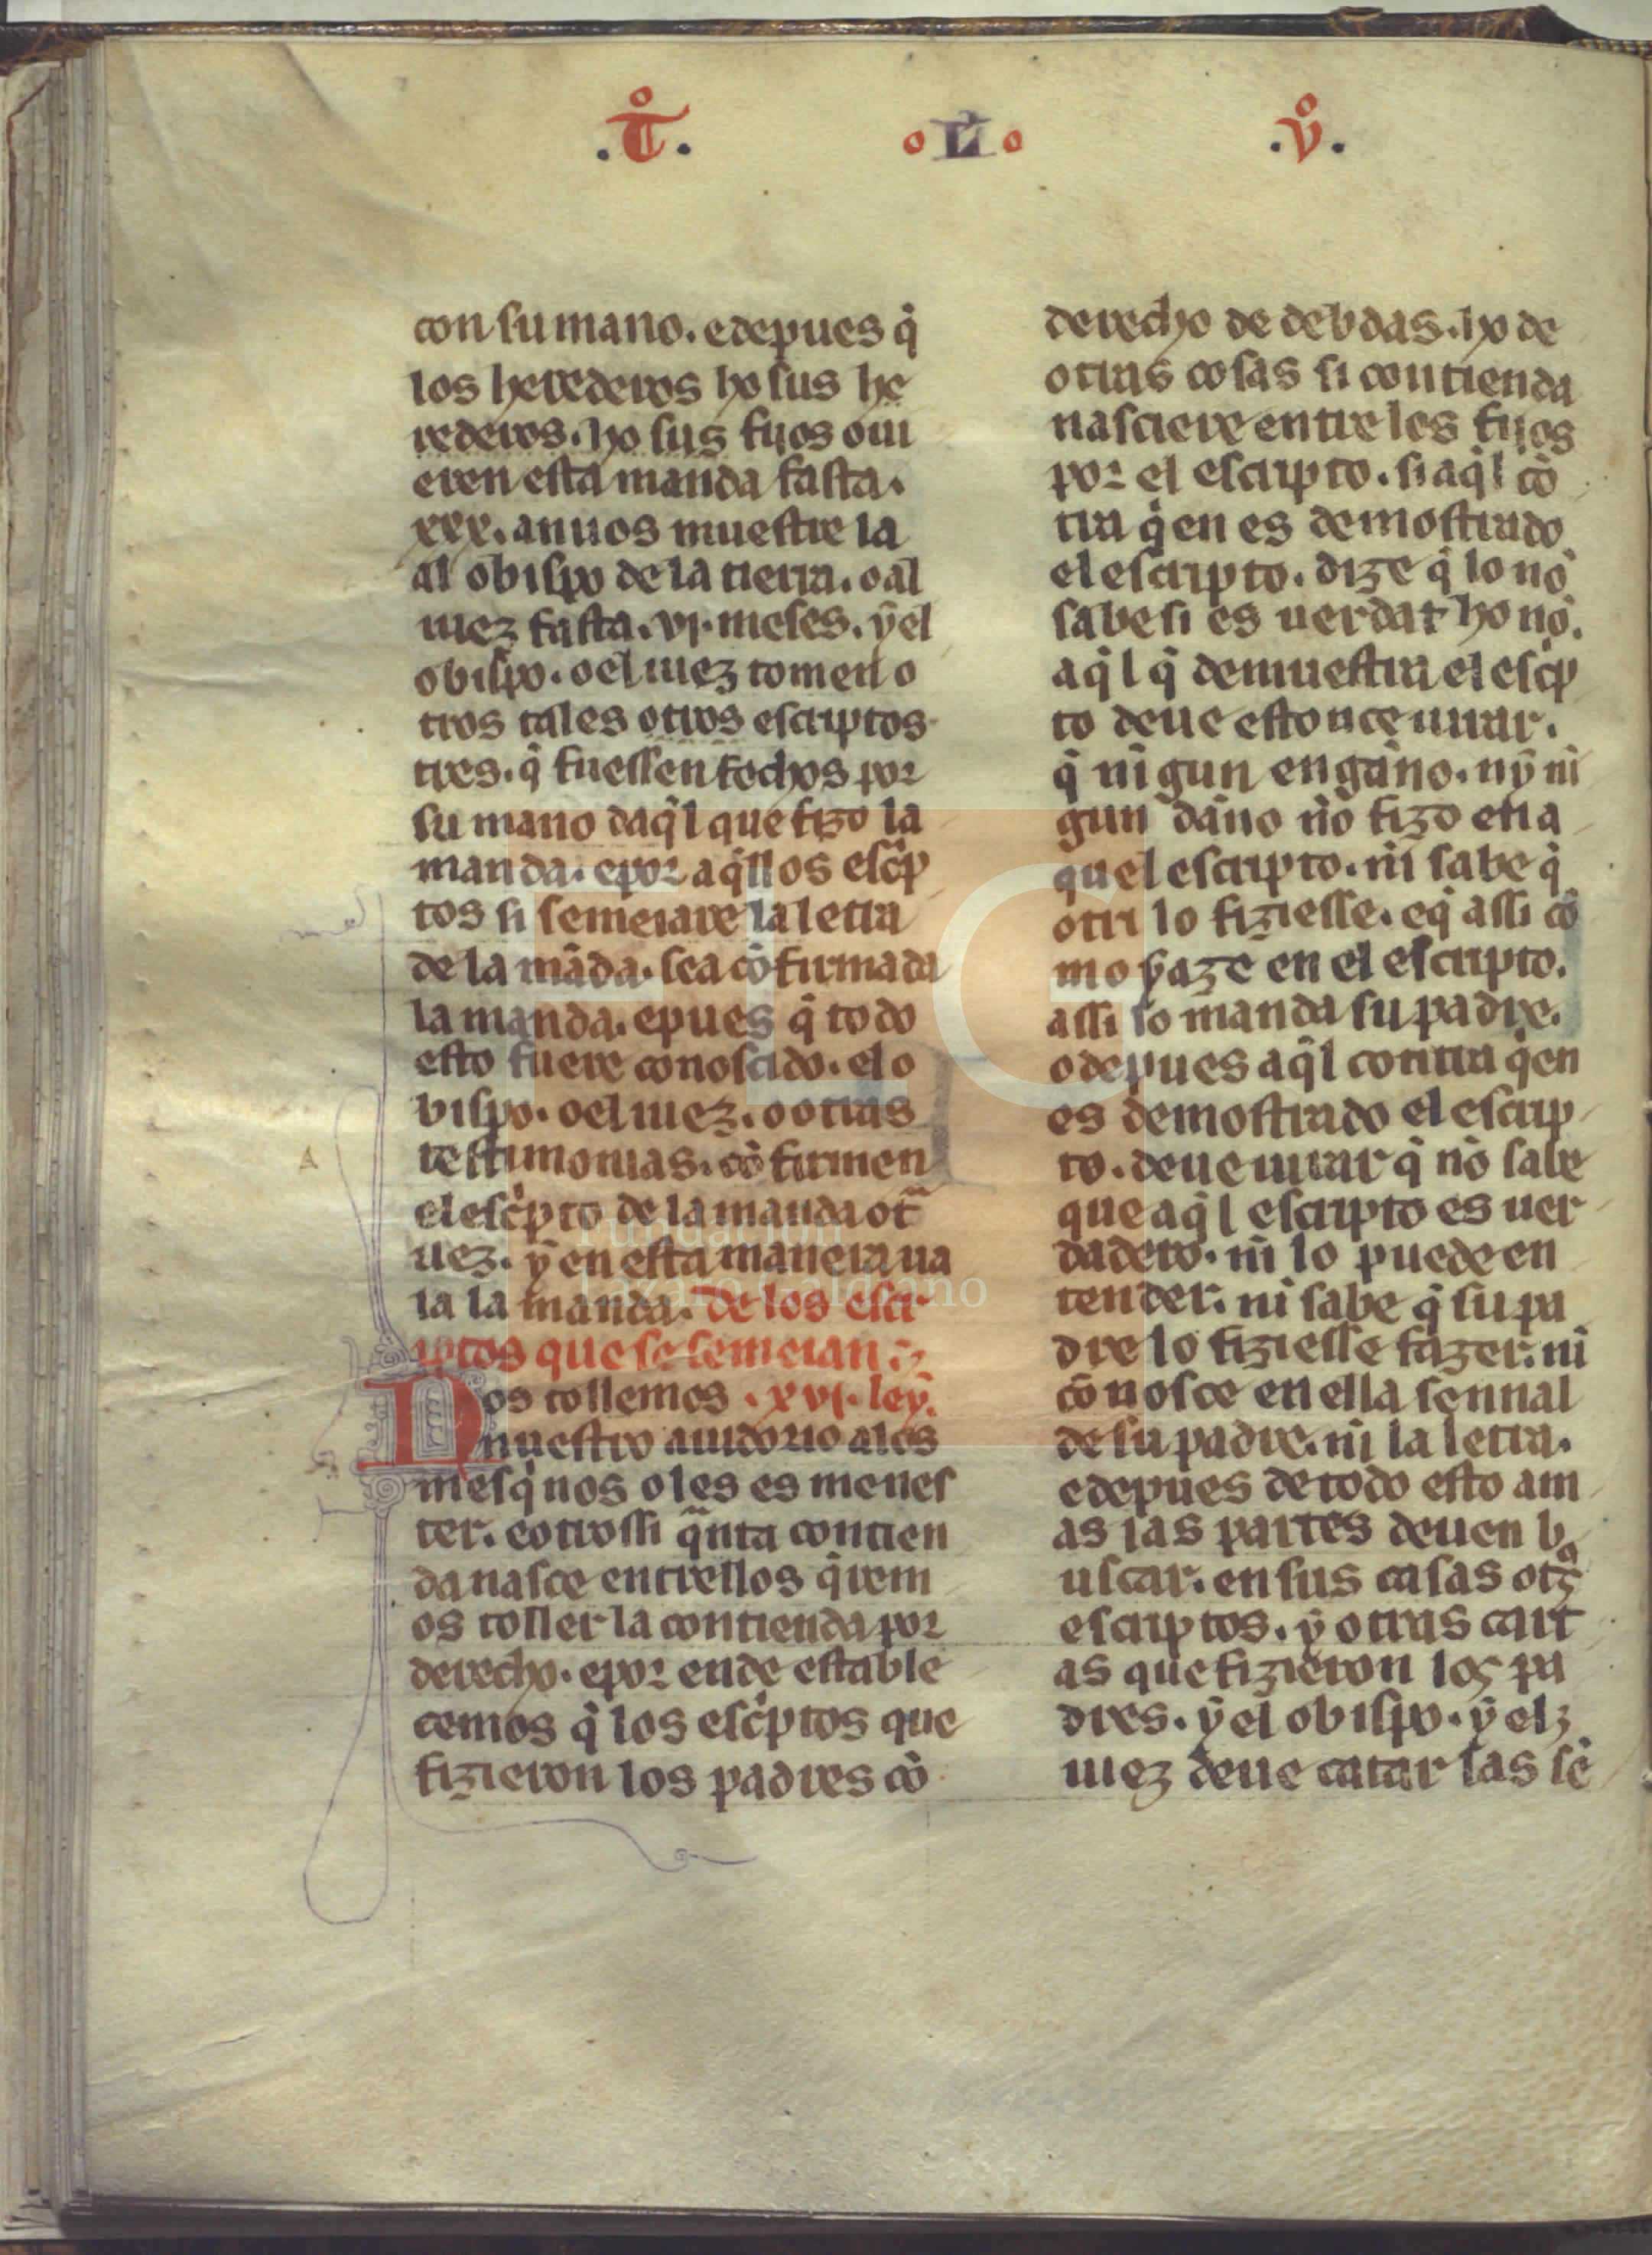 .T̊. o L̊ o .v̊.
con su mano. e depues q̇
los herederos ho sus he
rederos. ho sus fijos oui
eren esta manda fasta.
xxx. annos muestre la
al obispo de la tierra. o al
iuez fasta. vi. meses. ẏ el
obispo. o el iuez tomen o
tros tales otros escriptos
tres. q̇ fuessen fechos por
su mano daq̇l que fizo la
manda. e por aq̇llos esċp
tos si semeiare la letra
de la māda. sea cōfirmada
la manda. e pues q̇ todo
esto fuere conoscido. el o
bispo. o el iuez. o otras
testimonias. cōfirmen
el esċpto de la manda ot̃
uez. ẏ en esta manera ua
la la manda. de los escr
iptos que se semeian.
Nos tollemos .xvi. leẏ.
nuestro aiudorio a los
mesq̇nos o les es menes
ter. e otrossi q̃nta contien
da nasce entrellos q̇rem
os toller la contienda por
derecho. e por ende estable
cemos q̇ los esċptos que
fizieron los padres cō
derecho de debdas. ho de
otras cosas si contienda
nasciere entre los fijos
por el escripto. si aq̇l cō
tra q̇en es demostrado
el escripto. dize q̇ lo nō
sabe si es uerdat ho nō.
aq̇l q̇ demuestra el esċp
to deue estonce iurar.
q̇ nīgun engāno. nẏ nī
gun dāno nō fizo en a
quel escripto. nī sabe q̇
otri lo fiziesse. e q̇ assi cō
mo ẏaze en el escripto.
assi lo manda su padre.
o depues aq̇l contra q̇en
es demostrado el escrip
to. deue iurar q̇ nō sabe
que aq̇l escripto es uer
dadero. nī lo puede en
tender. ni sabe q̇ su pa
dre lo fiziesse fazer. ni
cōnosce en ella sennal
de su padre. ni la letra.
e depues de todo esto am
as las partes deuen b
uscar. en sus casas otͣs
escriptos. ẏ otras cart
as que fizieron los pa
dres. ẏ el obispo. ẏ el
iuez deue catar las sē
A
FLG
Fundación
Lázaro Galdiano